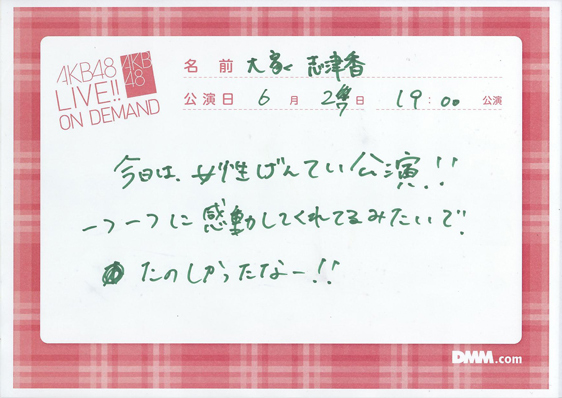 AKB48
LIVE!!
ON DEMAND
AKB
48
名前 大家 志津香
公演日 6月 27日 19:00 公演
今日は、女性げんてい公演!!
一つ一つに感動してくれてるみたいで
たのしかったなー!!
DMM.com